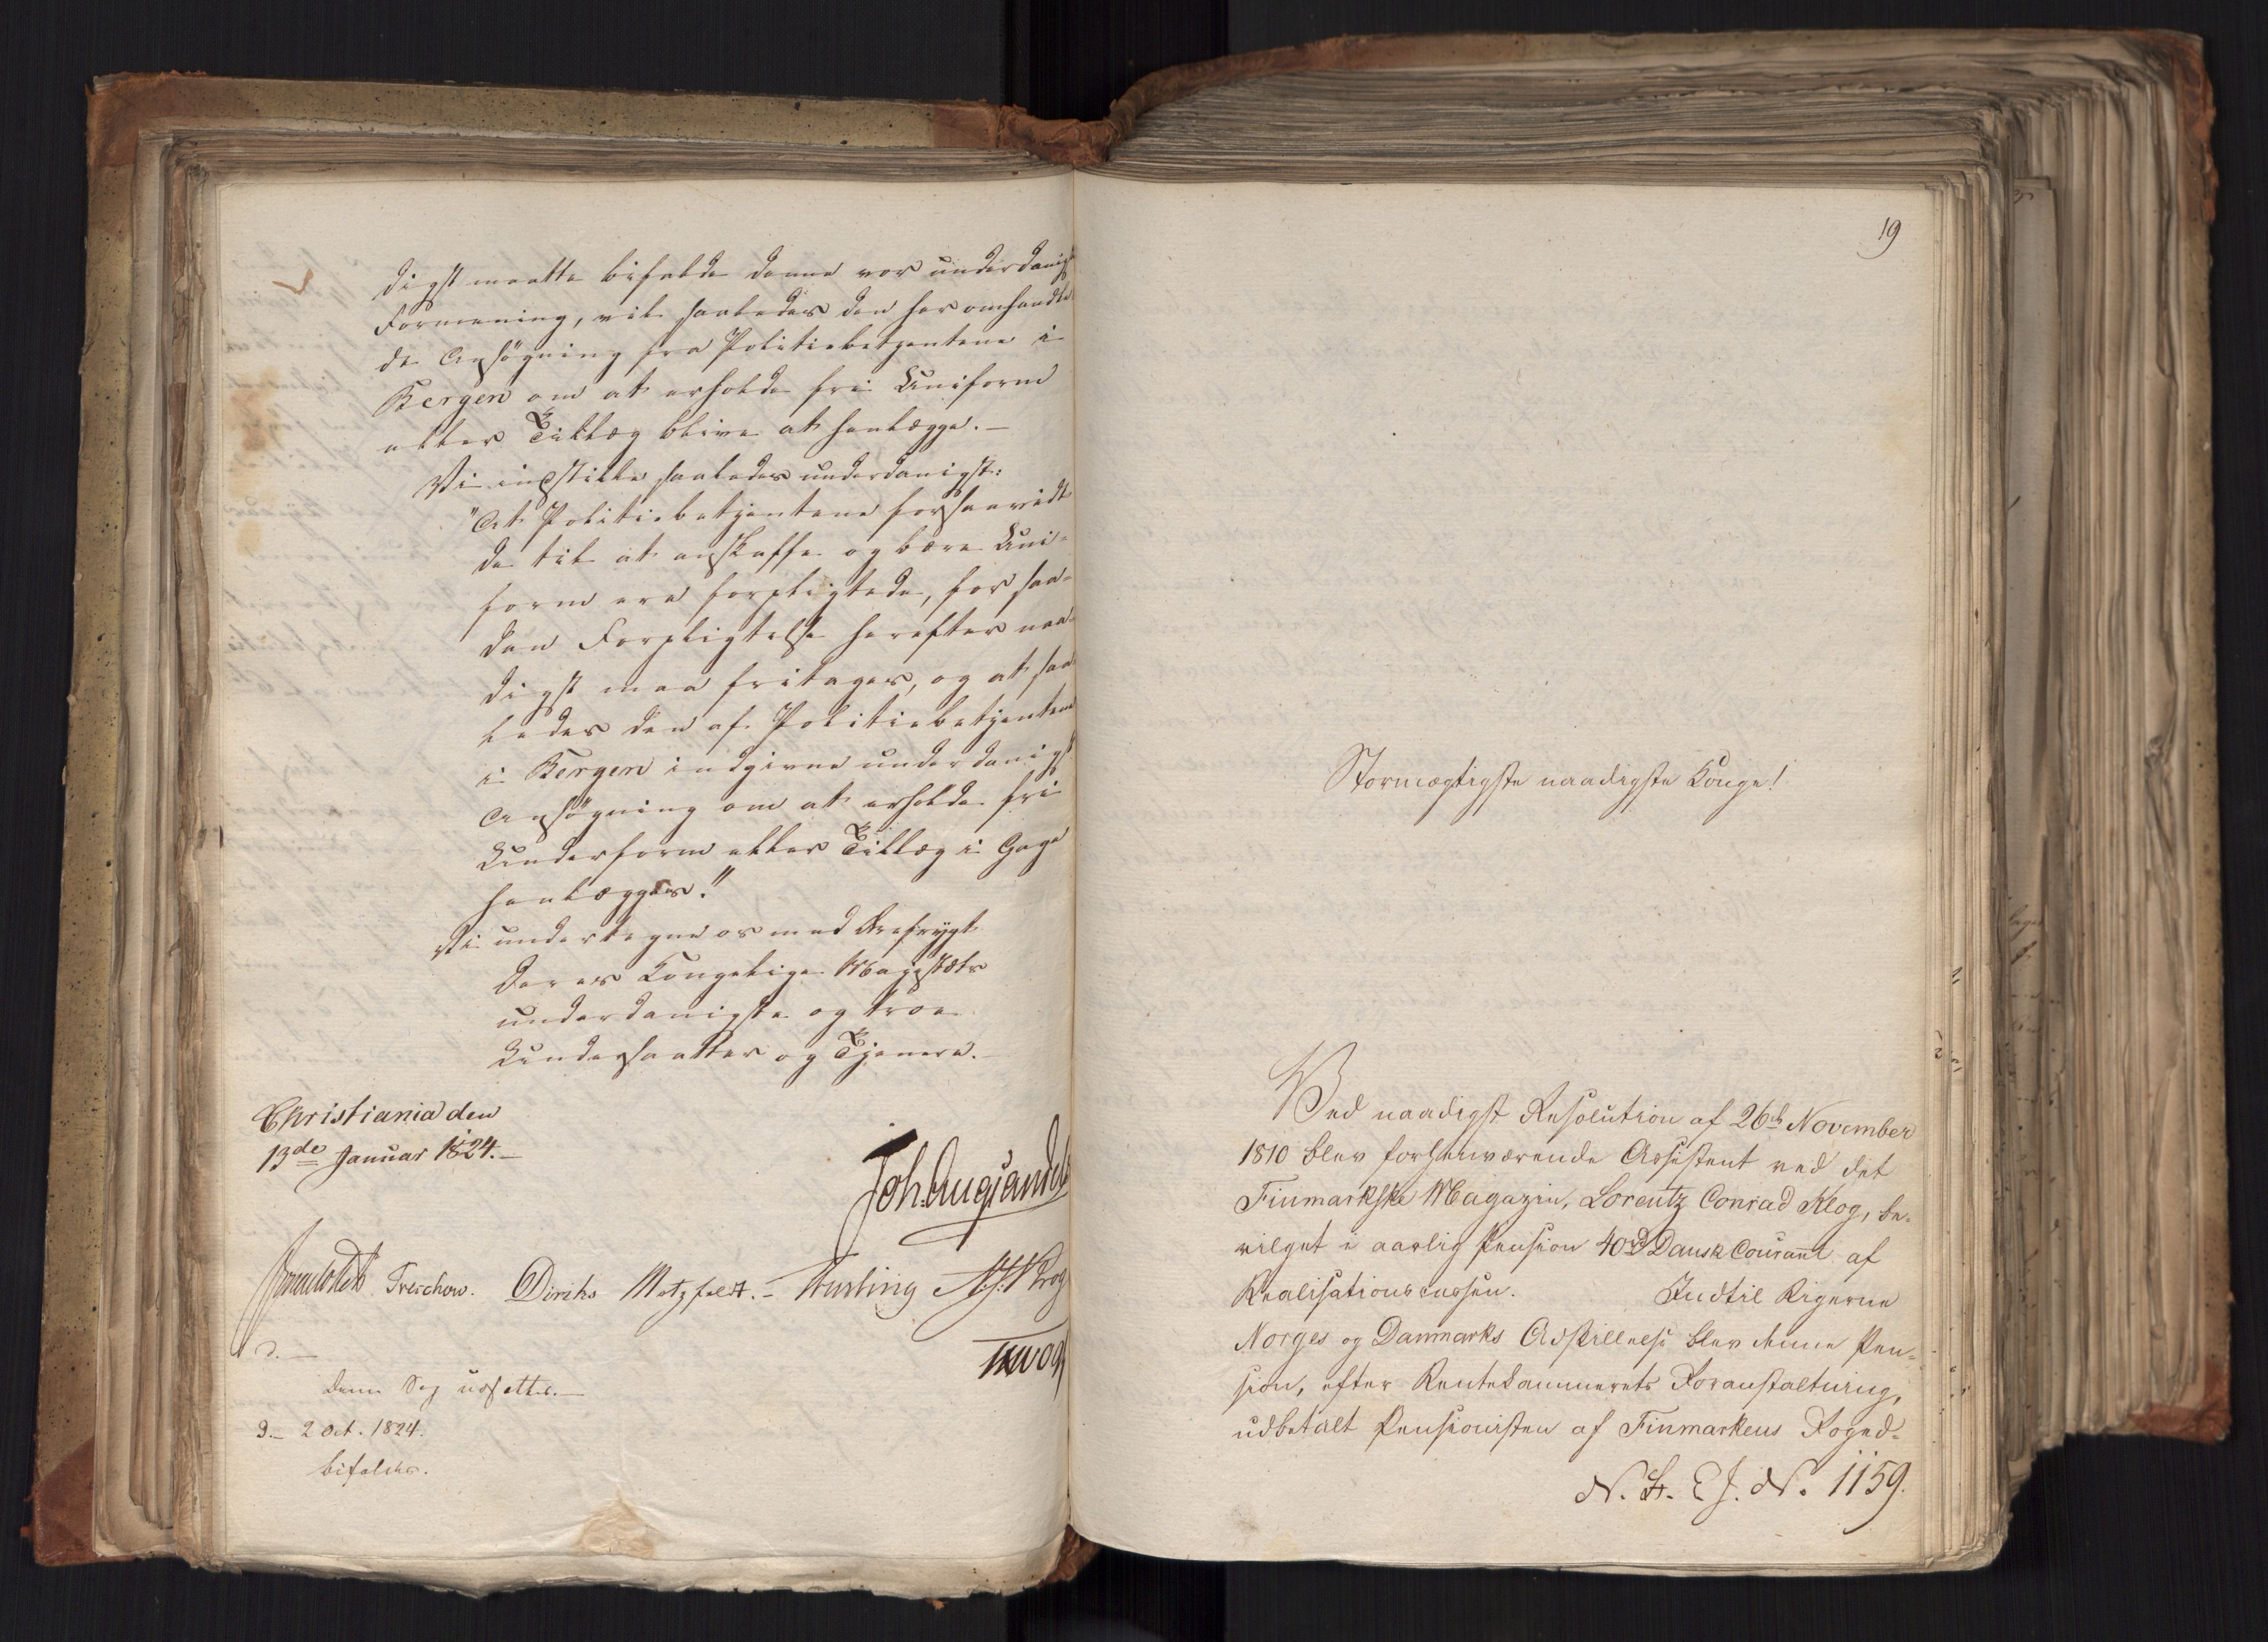 digst maatte bifalde denne vor underdanigst
Formening, vil saaledes den her omhandle
de Ansøgning fra Politiebetjentene i
Bergen om at erholde fri Uniform
eller Tillæg blive at henlægge. —
Vi indstille saaledes underdanigst:
"At Politiebetjentene forsaavidt
de til at anskaffe og bære Uni-
form ere forpligtede, for saa-
dan Forpligtelse herefter naa-
digst maa fritages, og at saa
ledes den af Politiebetjentene
i Bergen indgivne underdanigst
Ansøgning om at erholde fri
Underform eller Tillæg i Gage
henlægges."
Vi undertegne os med Ærefrygt
Deres Kongelige Majestæts
underdanigste og troe
Undersaatter og Tjenere. —
Christiania den
13de Januar 1824. —
Joh. Aug Sandels
Treschow. Diriks Motzfeldt. —
denne Sag udsettes. —
D. — 2 Oct. 1824.
bifaldes.
19
Stormægtigste naadigste Konge!
Ved naadigst Resolution af 26de November
1810 blev forhenværende Assistent ved det
Finmarkske Magazin, Lorentz Conrad Klog, be-
vilget i aarlig Pension 40rd Dansk Courant af
Realisationscassen. Indtil Rigerne
Norges og Danmarks Adskillelse blev denne Pen-
sion, efter Rentekammerets Foranstaltning,
udbetalt Pensionisten af Finmarkens Foged-
N. 1159.